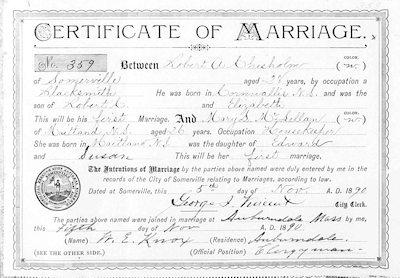 CERTIFICATE OF MARRIAGE.
COLOR. COLOR.
No. 359 Between Robert A. Chisholm (w.)
of Somerville aged 28 years, by occupation a
Blacksmith He was born in Cornwallis N.S. and was the
son of Robert C. and Elizabeth
This will be his first Marriage. And Mary S. McLellan (w.)
of Maitland, N.S. aged 26 years. Occupation Housekeeper
She was born in Maitland N.S. was the daughter of Edward
and Susan This will be her first marriage.
The Intentions of Marriage by the parties above named were duly entered by me in the
records of the City of Somerville relating to Marriages, according to law.
Dated at Somerville, this 5th day of Nov. A. D. 1890
George I. Vincent City Clerk.
The parties above named were joined in marriage at Auburndale Mass by me,
this Fifth day of Nov A. D. 1890.
(Name) W. E. Knox (Residence) Auburndale.
(SEE THE OTHER SIDE.) (Official Position) Clergyman.